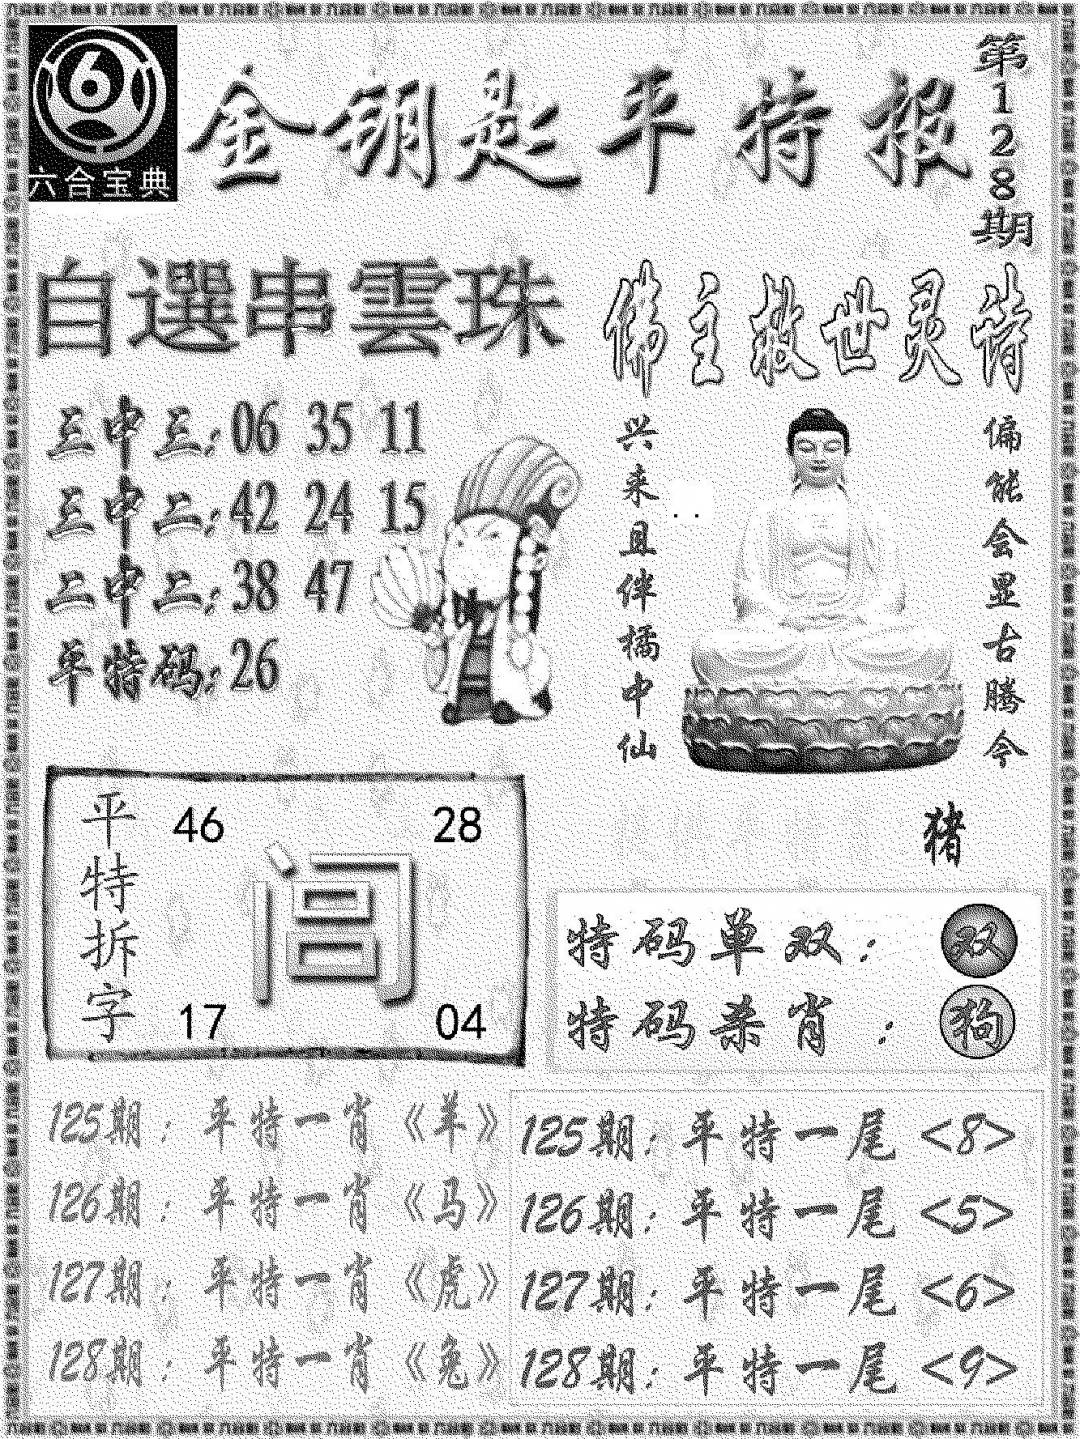 六合宝典
金钥匙平特报
第128期
自選串雲珠
三中三: 06 35 11
三中二: 42 24 15
二中二: 38 47
平特码: 26
佛主救世灵诗
偏能会显古腾今
兴来且伴橘中仙
猪
平特拆字
46 28
阊
17 04
特码单双: 双
特码杀肖: 狗
125期: 平特一肖《羊》
126期: 平特一肖《马》
127期: 平特一肖《虎》
128期: 平特一肖《兔》
125期: 平特一尾 <8>
126期: 平特一尾 <5>
127期: 平特一尾 <6>
128期: 平特一尾 <9>